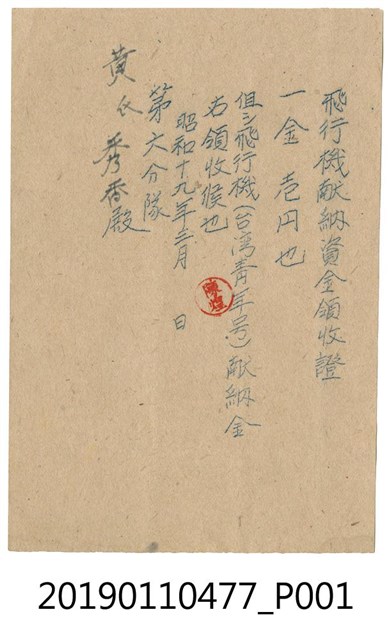 飛行機献納資金領收證
一金 壱円也
但シ飛行機(台湾青年号)献納金
右領收候也
昭和十九年三月 日
第六分隊
黄氏秀香殿
陳煌
20190110477_P001